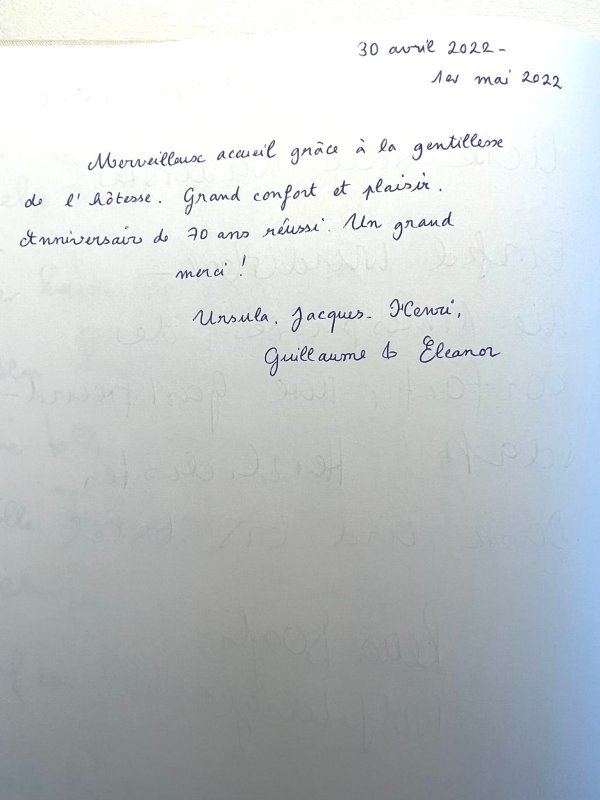 30 avril 2022 -
1er mai 2022
Merveilleux accueil grâce à la gentillesse
de l'hôtesse. Grand confort et plaisir.
Anniversair de 70 ans réussi. Un grand
merci !
Ursula. Jacques-Henri,
Guillaume & Eleanor